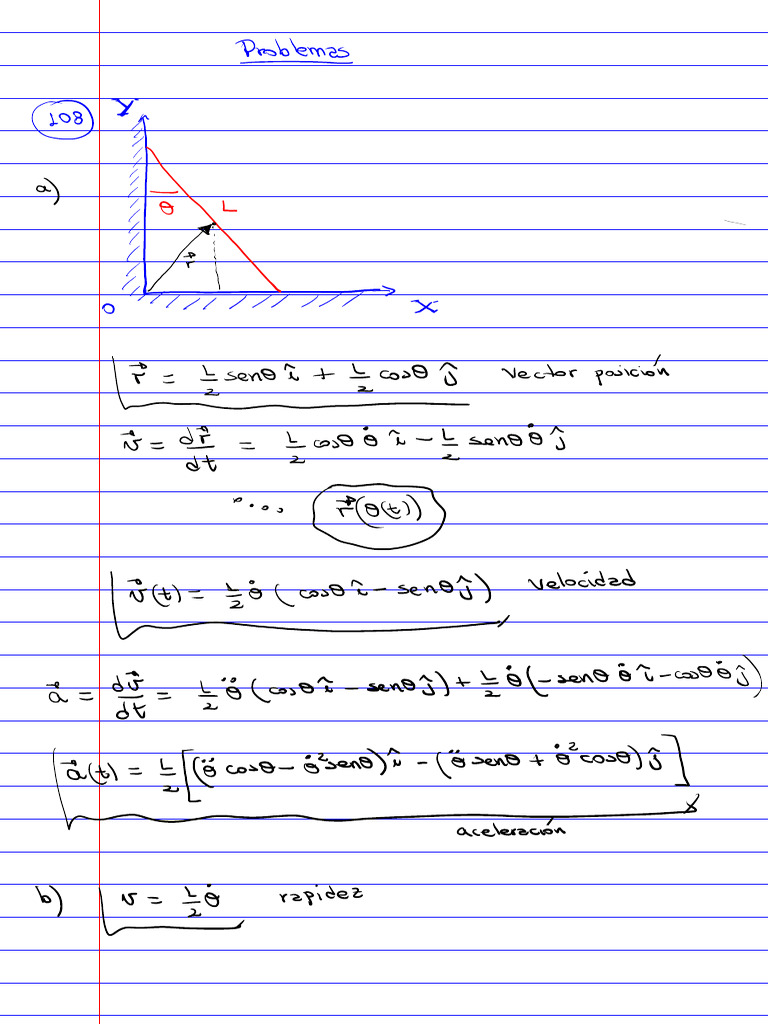 Problemas
108
Y
a)
θ
L
r⃗
O
X
r⃗ = L/2 senθ î + L/2 cosθ ĵ vector posición
v⃗ = dr⃗/dt = L/2 cosθ θ̇ î − L/2 senθ θ̇ ĵ
.... r⃗(θ(t))
v⃗(t) = L/2 θ̇ (cosθ î − senθ ĵ) velocidad
a⃗ = dv⃗/dt = L/2 θ̈ (cosθ î − senθ ĵ) + L/2 θ̇ (−senθ θ̇ î − cosθ θ̇ ĵ)
a⃗(t) = L/2 [(θ̈ cosθ − θ̇² senθ) î − (θ̈ senθ + θ̇² cosθ) ĵ]
aceleración
b) v = L/2 θ̇ rapidez